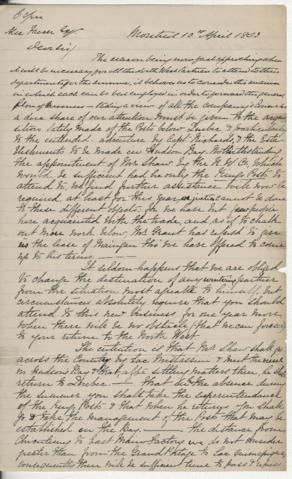 Copie
Alex Fraser Esqr
Montreal 10th April 1803
Dear Sir,
The season being now fast approaching when
it will be necessary for all the North West Partners to attend to their
departments for the summer, it behoves us to consider the manner
in which each can be best employed in order to forward the general
plan of business — taking a view of all the company's concerns
a due share of our attention must be given to the acqui
sitions lately made of the Posts below Quebec & particularly
to the intended adventure by Capt Richards & the Esta
blishments to be made in Hudson Bay. Notwithstanding
the appointment of Mr Shaw by the N. W. Co. which
would be sufficient had he only the Kings Posts to
attend to, we find further assistance will now be
required at least for this year, as justice cannot be done
to these different objects if we have but one person
acquainted with the trade, and to chalk
out more work below. Mr Grant has refused to give
us the lease of tho' we have offered to come
up to his terms. —
It seldom happens that we are obliged
to change the destination of any wintering partner
from the situation most agreeable to himself, but
circumstances absolutely require that you should
attend to this new business for one year more,
when there will be no obstacle (that we can foresee)
to your return to the North West.
The intention is that Mr Shaw shall go
across the Country by Lac Mistassin & meet the vessel
in Hudsons Bay & that after settling matters there he shall
return to Quebec — that during his absence during
the summer you shall take the superintendance
of the Kings Posts & that when he returns you shall
go & take the management of the Post that may be
established on the Bay. — the distance from
Chicoutimy to East Main Factory we do not consider
greater than from the Grand Portage to Lac Ouinipique,
consequently there will be sufficient time to pass & repass